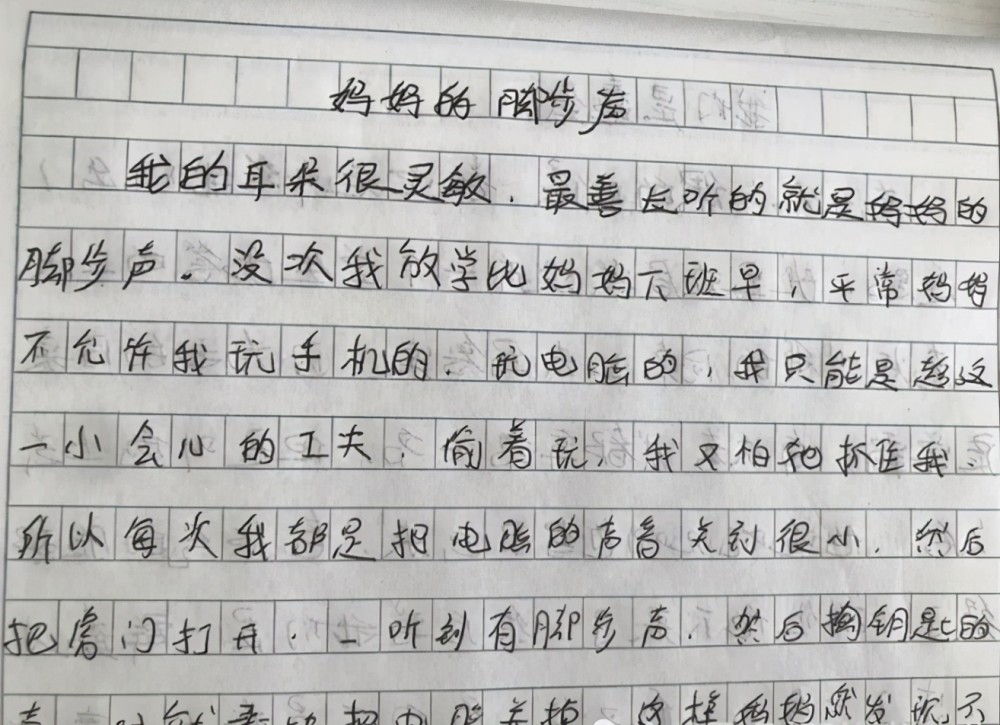 妈妈的脚步声
我的耳朵很灵敏，最善长听的就是妈妈的
脚步声。没次我放学比妈妈下班早，平常妈妈
不允许我玩手机的，玩电脑的，我只能是趁这
一小会儿的工夫，偷着玩，我又怕她抓住我，
所以每次我都是把电脑的声音关到很小，然后
把房门打开，一听到有脚步声，然后掏钥匙的
声 就 把电脑关掉 这样妈妈就发现不